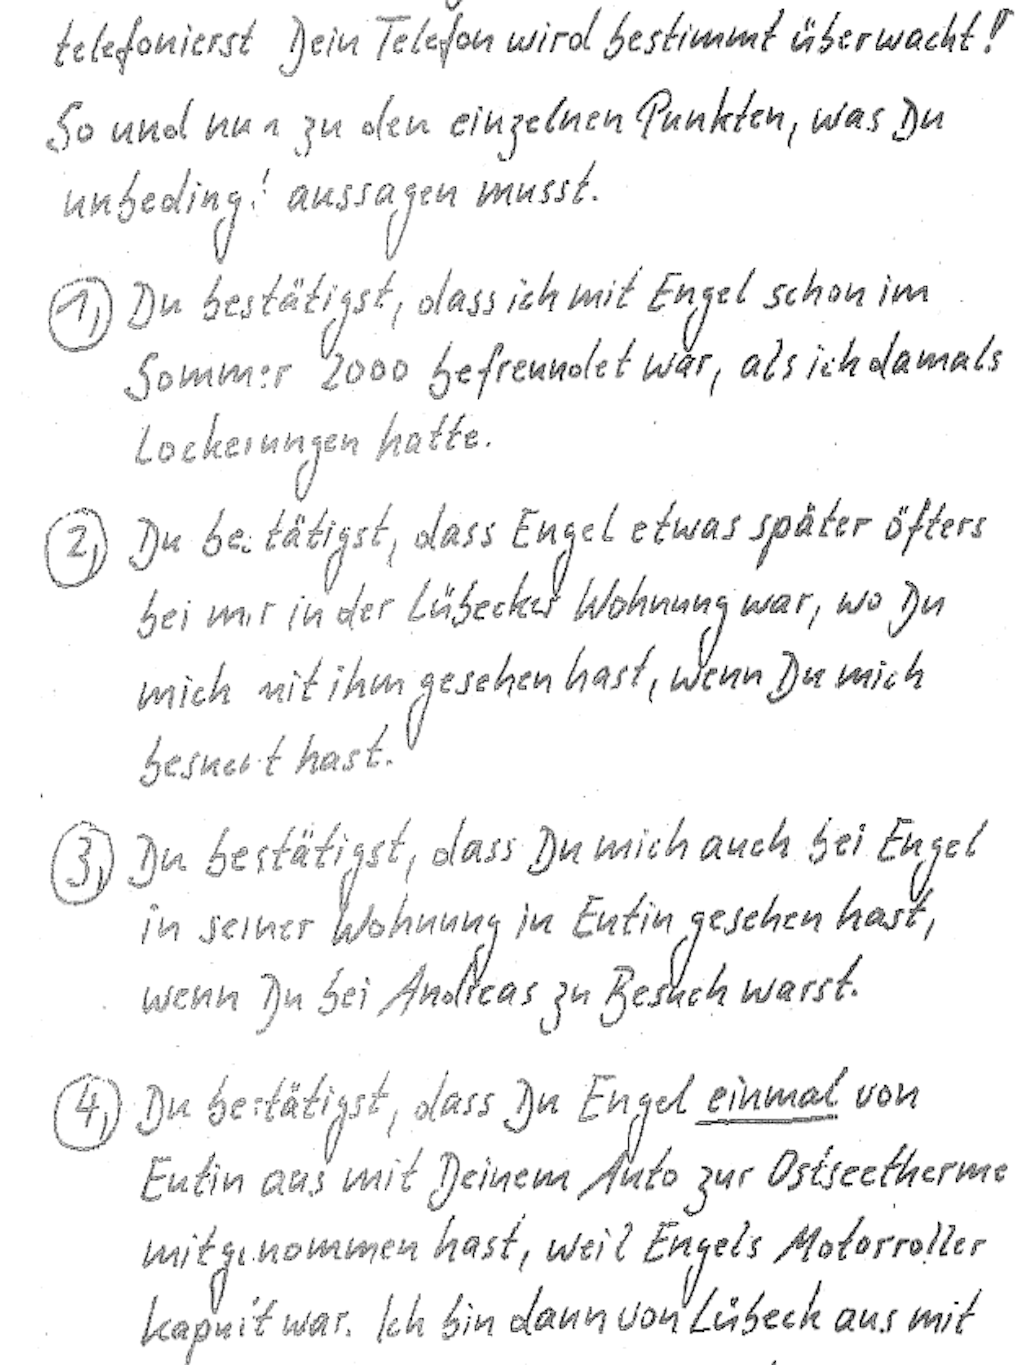 telefonierst Dein Telefon wird bestimmt überwacht!
So und nun zu den einzelnen Punkten, was Du
unbeding! aussagen musst.
1, Du bestätigst, dass ich mit Engel schon im
Sommer 2000 befreundet war, als ich damals
Lockerungen hatte.
2, Du bestätigst, dass Engel etwas später öfters
bei mir in der Lübecker Wohnung war, wo Du
mich mit ihm gesehen hast, wenn Du mich
besucht hast.
3, Du bestätigst, dass Du mich auch bei Engel
in seiner Wohnung in Eutin gesehen hast,
wenn Du bei Andreas zu Besuch warst.
4, Du bestätigst, dass Du Engel einmal von
Eutin aus mit Deinem Auto zur Ostseetherme
mitgenommen hast, weil Engels Motorroller
kaputt war. Ich bin dann von Lübeck aus mit